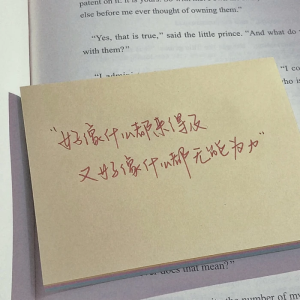 patent on it. It is yours.
else before me ever thought of owning them."
"Yes, that is true," said the little prince. "And what do
with them?"
"I
"I co
"好像什么都来得及
又好像什么都无能为力"
does that mean?"
the number of my